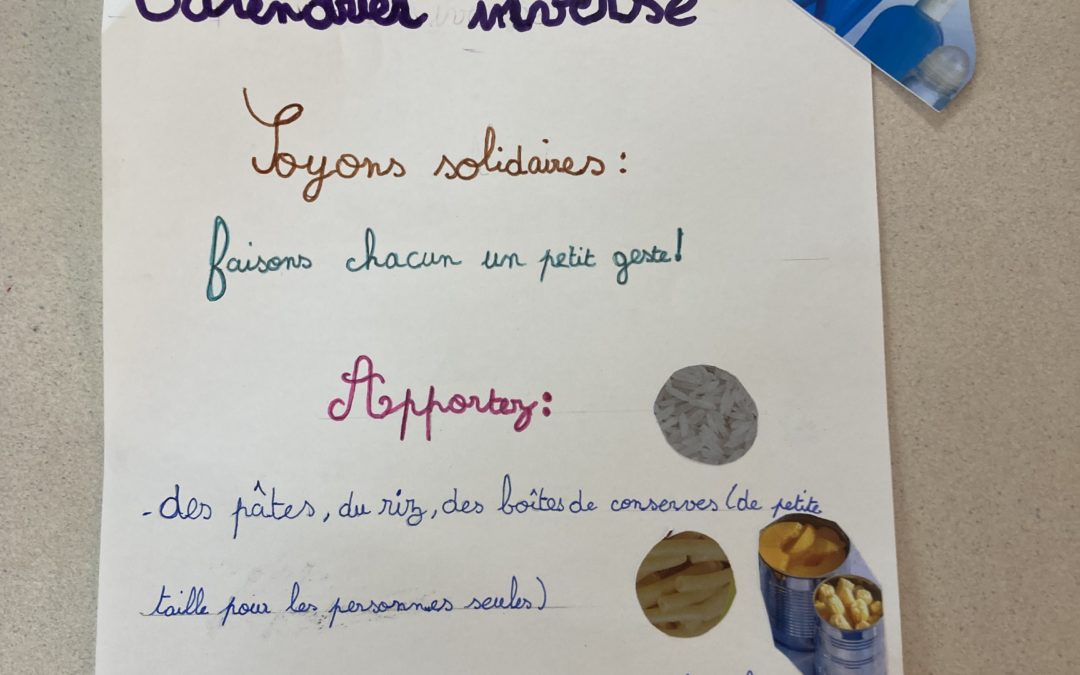 Calendrier inversé
Soyons solidaires :
faisons chacun un petit geste!
Apportez:
- des pâtes, du riz, des boîtes de conserves (de petite
taille pour les personnes seules)